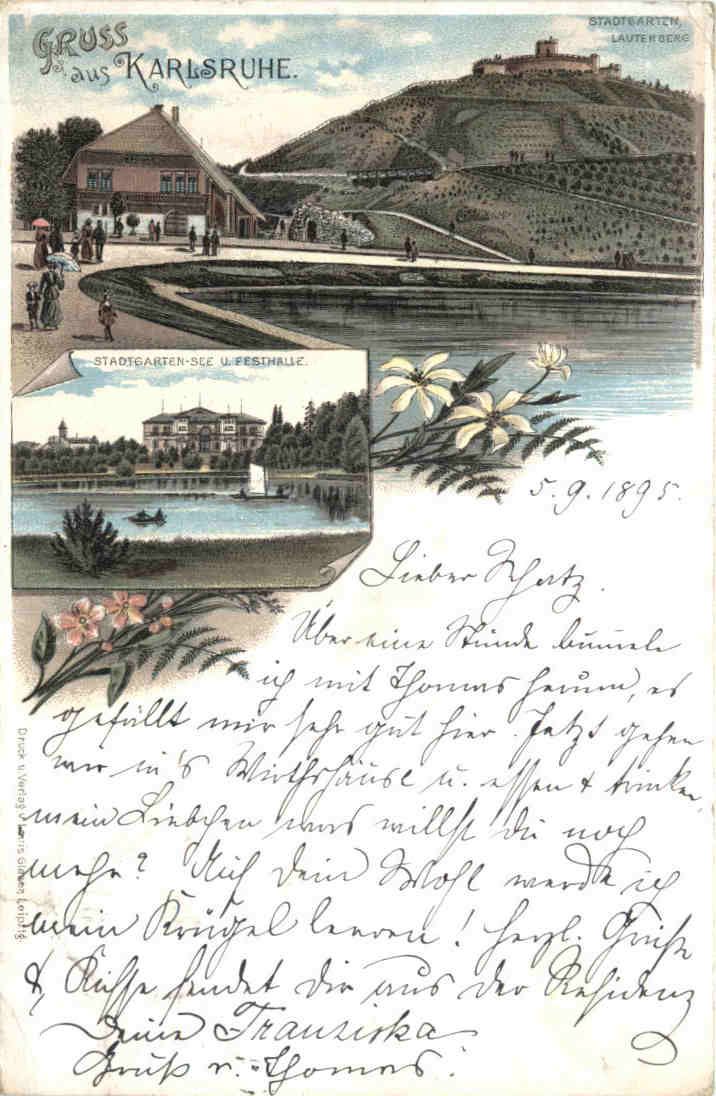 GRUSS
aus KARLSRUHE.
STADTGARTEN,
LAUTERBERG
STADTGARTEN-SEE U. FESTHALLE.
5.9.1895.
Lieber Schatz.
Über eine Stunde bumele
ich mit Thomas herum, es
gefällt mir sehr gut hier. Jetzt gehen
wir in's Wirthshäusl u. essen & trinken,
mein Liebchen was willst du noch
mehr? Auf dein Wohl werde ich
mein Krügel leeren! Herzl. Grüße
& Küsse sendet dir aus der Residenz
Deine Franziska
Gruß v. Thomas.
Druck u. Verlag v. Louis Glaser, Leipzig